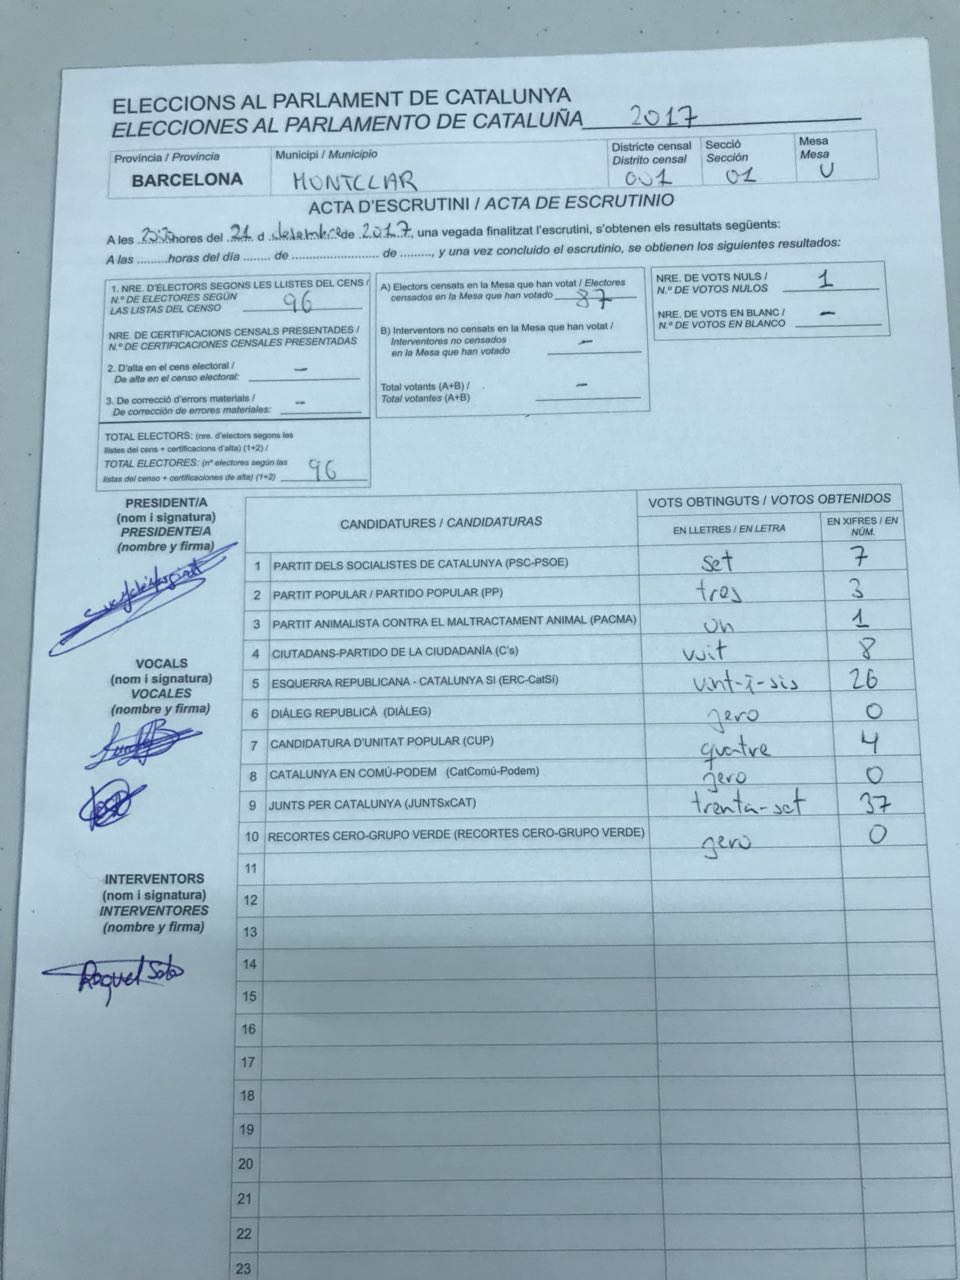 ELECCIONS AL PARLAMENT DE CATALUNYA
ELECCIONES AL PARLAMENTO DE CATALUÑA 2017
Provincia / Provincia
BARCELONA
Municipi / Municipio
MONTCLAR
Districte censal
Distrito censal
001
Secció
Sección
01
Mesa
Mesa
U
ACTA D'ESCRUTINI / ACTA DE ESCRUTINIO
A les 20:30 hores del 21 d desembre de 2017, una vegada finalitzat l'escrutini, s'obtenen els resultats següents:
A las ......... horas del día ........ de .......................... de ........., y una vez concluido el escrutinio, se obtienen los siguientes resultados:
1. NRE. D'ELECTORS SEGONS LES LLISTES DEL CENS /
N.º DE ELECTORES SEGÚN
LAS LISTAS DEL CENSO 96
NRE. DE CERTIFICACIONS CENSALS PRESENTADES /
N.º DE CERTIFICACIONES CENSALES PRESENTADAS
2. D'alta en el cens electoral /
De alta en el censo electoral: –
3. De correcció d'errors materials /
De corrección de errores materiales: –
TOTAL ELECTORS: (nre. d'electors segons les
llistes del cens + certificacions d'alta) (1+2) /
TOTAL ELECTORES: (nº electores según las
listas del censo + certificaciones de alta) (1+2) 96
A) Electors censats en la Mesa que han votat / Electores
censados en la Mesa que han votado 87
B) Interventors no censats en la Mesa que han votat /
Interventores no censados
en la Mesa que han votado –
Total votants (A+B) /
Total votantes (A+B) –
NRE. DE VOTS NULS /
N.º DE VOTOS NULOS 1
NRE. DE VOTS EN BLANC /
N.º DE VOTOS EN BLANCO –
PRESIDENT/A
(nom i signatura)
PRESIDENTE/A
(nombre y firma)
VOCALS
(nom i signatura)
VOCALES
(nombre y firma)
INTERVENTORS
(nom i signatura)
INTERVENTORES
(nombre y firma)
Raquel Soto
CANDIDATURES / CANDIDATURAS
VOTS OBTINGUTS / VOTOS OBTENIDOS
EN LLETRES / EN LETRA
EN XIFRES / EN
NÚM.
1 PARTIT DELS SOCIALISTES DE CATALUNYA (PSC-PSOE) set 7
2 PARTIT POPULAR / PARTIDO POPULAR (PP) tres 3
3 PARTIT ANIMALISTA CONTRA EL MALTRACTAMENT ANIMAL (PACMA) un 1
4 CIUTADANS-PARTIDO DE LA CIUDADANÍA (C's) vuit 8
5 ESQUERRA REPUBLICANA - CATALUNYA SI (ERC-CatSí) vint-i-sis 26
6 DIÀLEG REPUBLICÀ (DIÀLEG) zero 0
7 CANDIDATURA D'UNITAT POPULAR (CUP) quatre 4
8 CATALUNYA EN COMÚ-PODEM (CatComú-Podem) zero 0
9 JUNTS PER CATALUNYA (JUNTSxCAT) trenta-set 37
10 RECORTES CERO-GRUPO VERDE (RECORTES CERO-GRUPO VERDE) zero 0
11
12
13
14
15
16
17
18
19
20
21
22
23